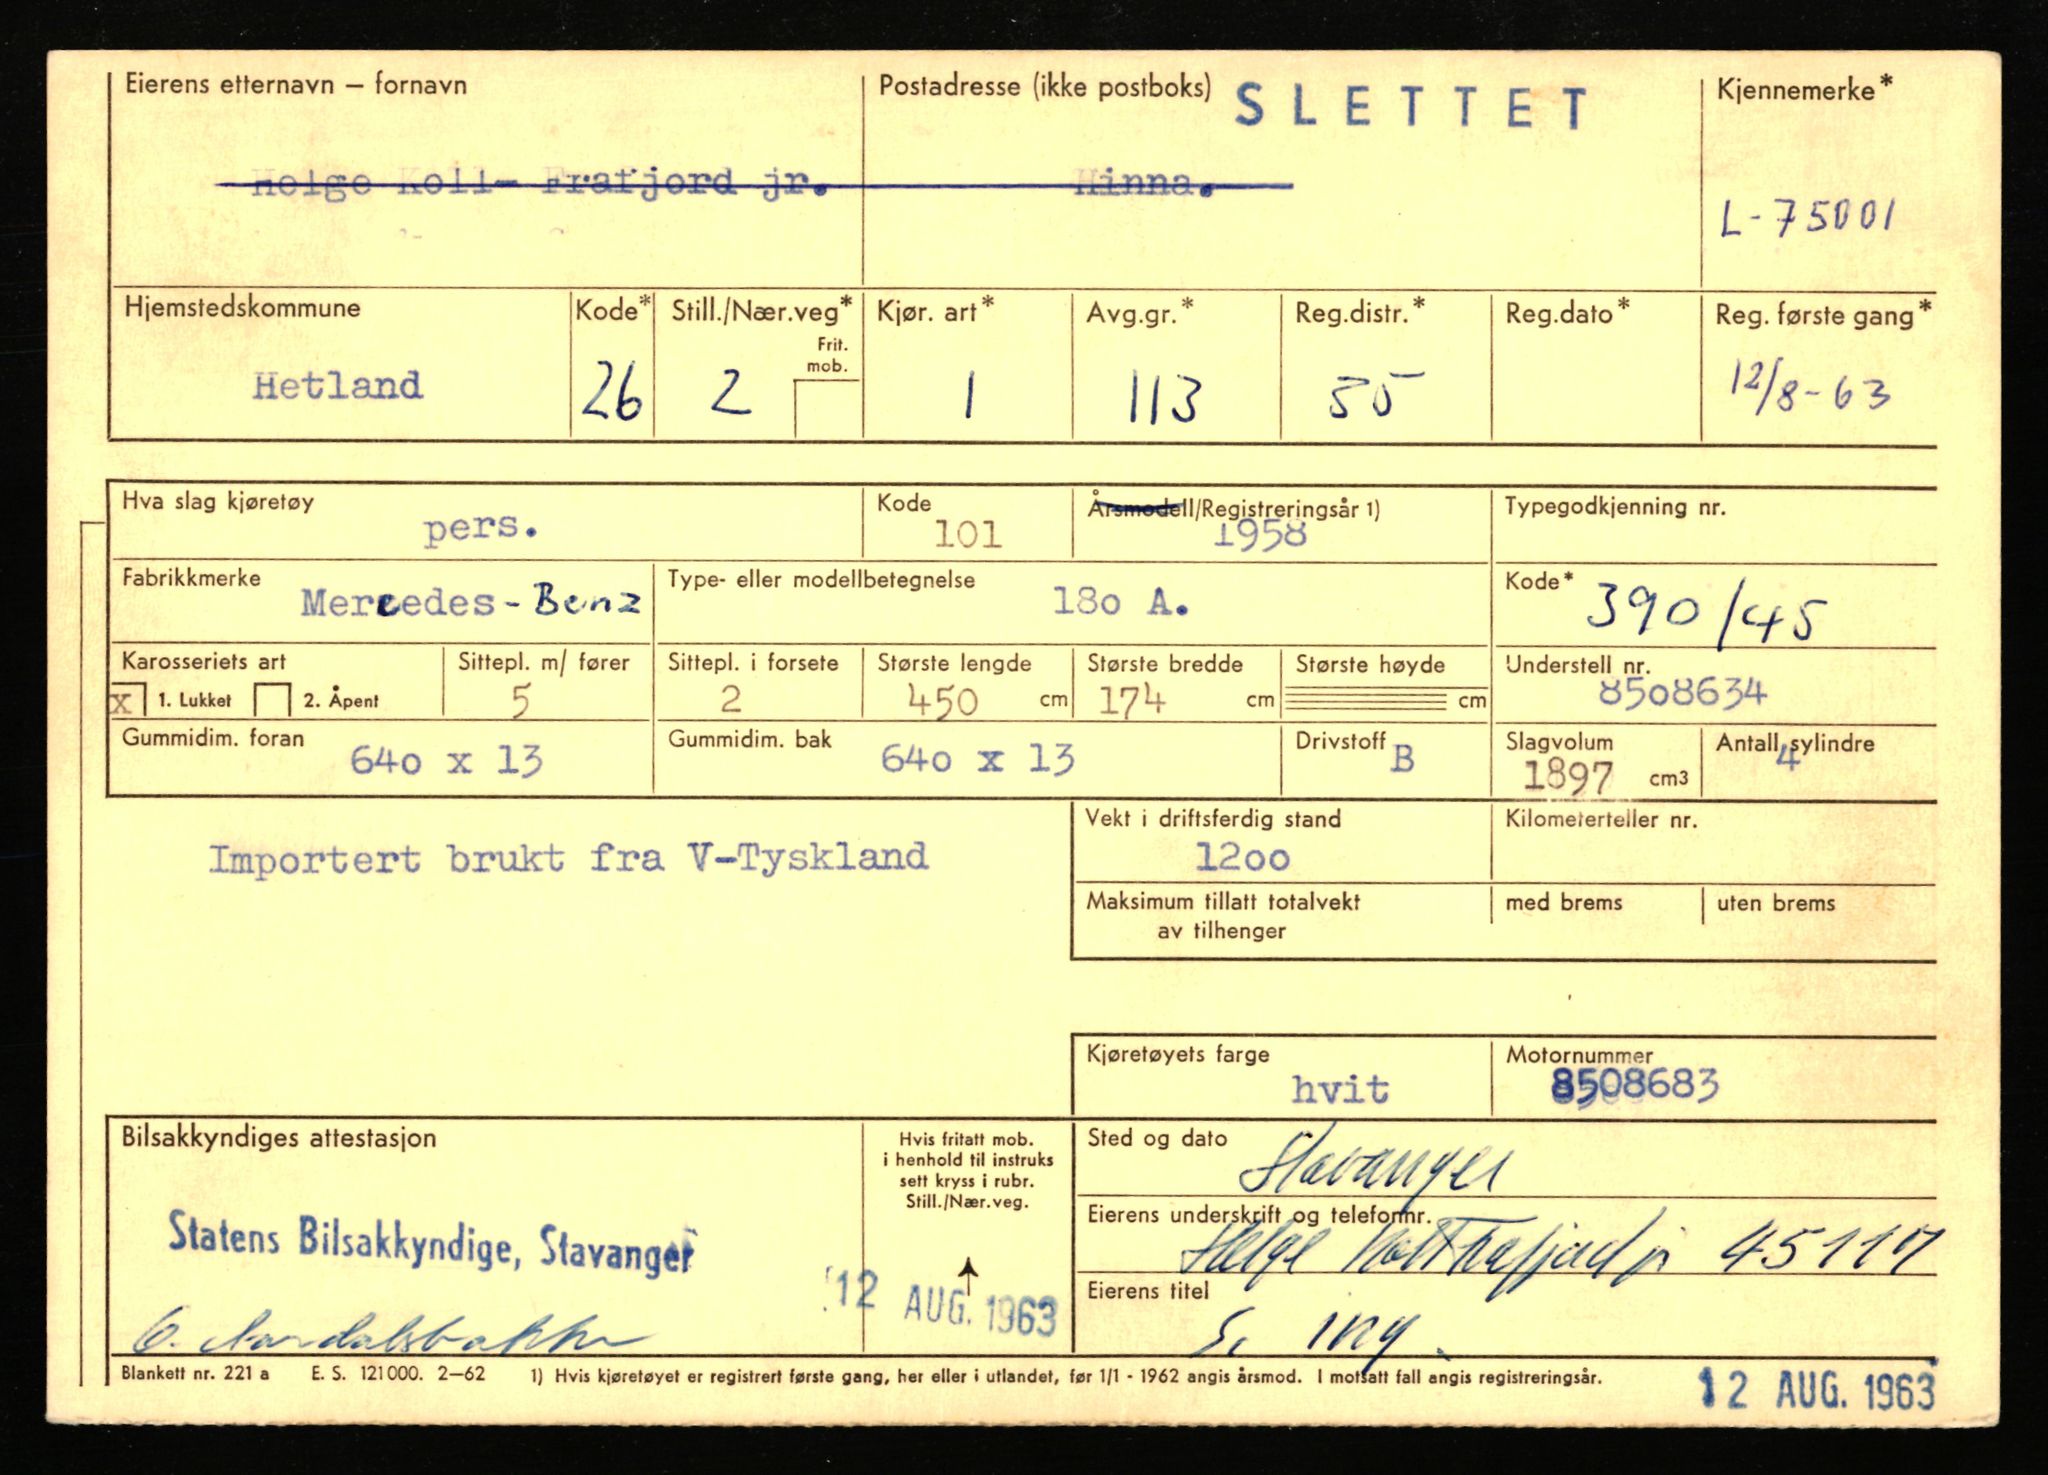 Eierens etternavn – fornavn Postadresse (ikke postboks) SLETTET Kjennemerke*
Helge Koll- Frafjord jr. Hinna.
L-75001
Hjemstedskommune Kode* Still./Nær.veg* Kjør. art* Avg.gr.* Reg.distr.* Reg.dato* Reg. første gang*
Frit. mob.
Hetland 26 2 1 113 55 12/8-63
Hva slag kjøretøy Kode Årsmodell/Registreringsår 1) Typegodkjenning nr.
pers. 101 1958
Fabrikkmerke Type- eller modellbetegnelse Kode*
Mercedes-Benz 180 A. 390/45
Karosseriets art Sittepl. m/ fører Sittepl. i forsete Største lengde Største bredde Største høyde Understell nr.
x 1. Lukket 2. Åpent 5 2 450 cm 174 cm cm 8508634
Gummidim. foran Gummidim. bak Drivstoff Slagvolum Antall sylindre
640 x 13 640 x 13 B 1897 cm3 4
Vekt i driftsferdig stand Kilometerteller nr.
Importert brukt fra V-Tyskland 1200
Maksimum tillatt totalvekt med brems uten brems
av tilhenger
Kjøretøyets farge Motornummer
hvit 8508683
Bilsakkyndiges attestasjon Hvis fritatt mob. Sted og dato
i henhold til instruks
sett kryss i rubr.
Still./Nær.veg.
Stavanger
Eierens underskrift og telefonnr.
Statens Bilsakkyndige, Stavanger
Helge Koll Frafjord jr 45117
12 AUG. 1963
Eierens titel
S. ing.
Blankett nr. 221 a E. S. 121000. 2–62 1) Hvis kjøretøyet er registrert første gang, her eller i utlandet, før 1/1 - 1962 angis årsmod. I motsatt fall angis registreringsår.
12 AUG. 1963